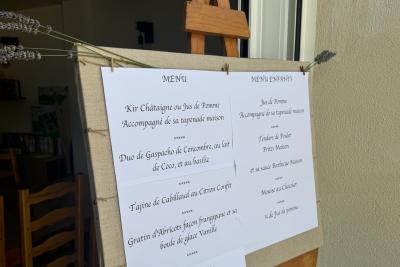 MENU
Kir Châtaigne ou Jus de Pomme
Accompagné de sa tapenade maison
*****
Duo de Gaspacho de Concombre, au lait
de Coco, et au basilic
*****
Tajine de Cabillaud au Citron Confit
*****
Gratin d'Abricots façon frangipane et sa
boule de glace Vanille
*****
MENU ENFANTS
Jus de Pomme
Accompagné de sa tapenade maison
*****
Tenders de Poulet
Frites Maison
et sa sauce Barbecue Maison
*****
Mousse au Chocolat
*****
Jus de pomme